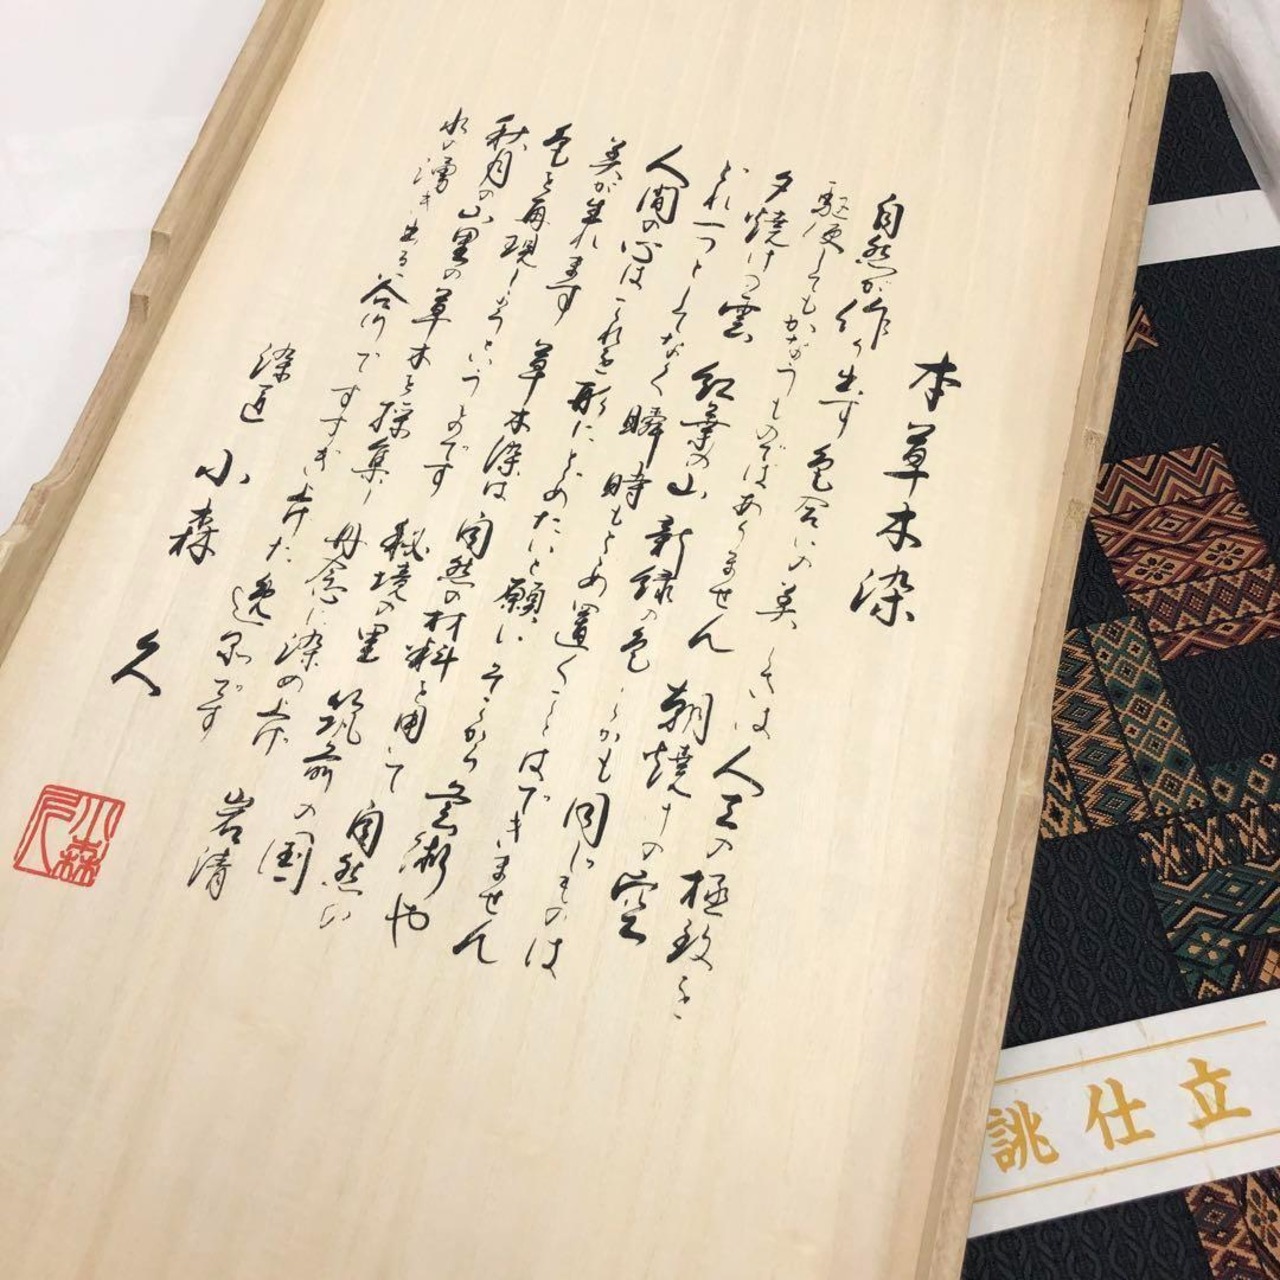 本草木染
自然が作り出す色合いの美しさは人工の極致を
駆使してもかなうものではありません 朝焼けの空
夕焼けの雲 紅葉の山 新緑の色 しかも同じものは
どれ一つとしてなく瞬時もとめ置くことはできません
人間の心はこれを形にとどめたいと願い そこから芸術や
美が生れます 草木染は自然の材料を用いて 自然の
色を再現しようというものです 秘境の里 筑前の国
秋月の山里の草木を採集し 丹念に染め上げ 岩清
水湧き出る谷川ですすぎ上げた逸品です
染匠 小森 久
小森久
誂仕立